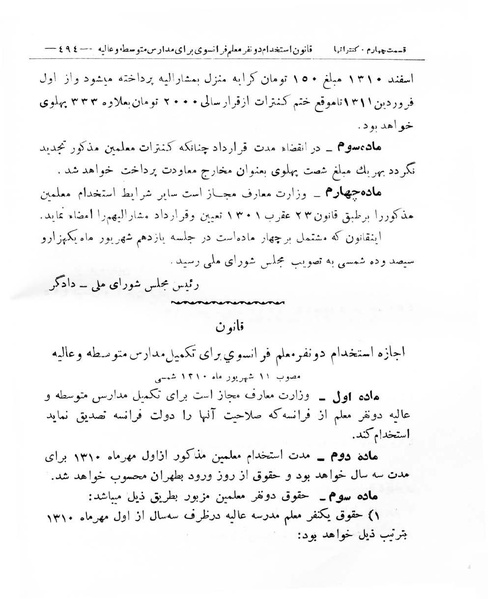 قسمت چهارم . کنتراتها
قانون استخدام دو نفر معلم فرانسوی برای مدارس متوسطه و عالیه
—۴۹۴—
اسفند ۱۳۱۰ مبلغ ۱۵۰ تومان کرایه منزل بمشارالیه پرداخته میشود و از اول
فروردین ۱۳۱۱ تا موقع ختم کنترات از قرار سالی ۲۰۰۰ تومان بعلاوه ۳۳۳ پهلوی
خواهد بود.
ماده سوم – در انقضاء مدت قرارداد چنانکه کنترات معلمین مذکور تجدید
نگردد بهریك مبلغ شصت پهلوی بعنوان مخارج معاودت پرداخت خواهد شد.
ماده چهارم – وزارت معارف مجاز است سایر شرایط استخدام معلمین
مذکور را برطبق قانون ۲۳ عقرب ۱۳۰۱ تعیین و قرارداد مشارالیهم را امضاء نماید.
اینقانون که مشتمل بر چهار ماده است در جلسه یازدهم شهریور ماه یکهزار و
سیصد و ده شمسی به تصویب مجلس شورای ملی رسید.
رئیس مجلس شورای ملی – دادگر
قانون
اجازه استخدام دو نفر معلم فرانسوی برای تکمیل مدارس متوسطه و عالیه
مصوب ۱۱ شهریور ماه ۱۳۱۰ شمسی
ماده اول – وزارت معارف مجاز است برای تکمیل مدارس متوسطه و
عالیه دو نفر معلم از فرانسه که صلاحیت آنها را دولت فرانسه تصدیق نماید
استخدام کند.
ماده دوم – مدت استخدام معلمین مذکور از اول مهر ماه ۱۳۱۰ برای
مدت سه سال خواهد بود و حقوق از روز ورود بطهران محسوب خواهد شد.
ماده سوم – حقوق دو نفر معلمین مزبور بطریق ذیل میباشد:
۱) حقوق یکنفر معلم مدرسه عالیه در ظرف سه سال از اول مهر ماه ۱۳۱۰
بترتیب ذیل خواهد بود: